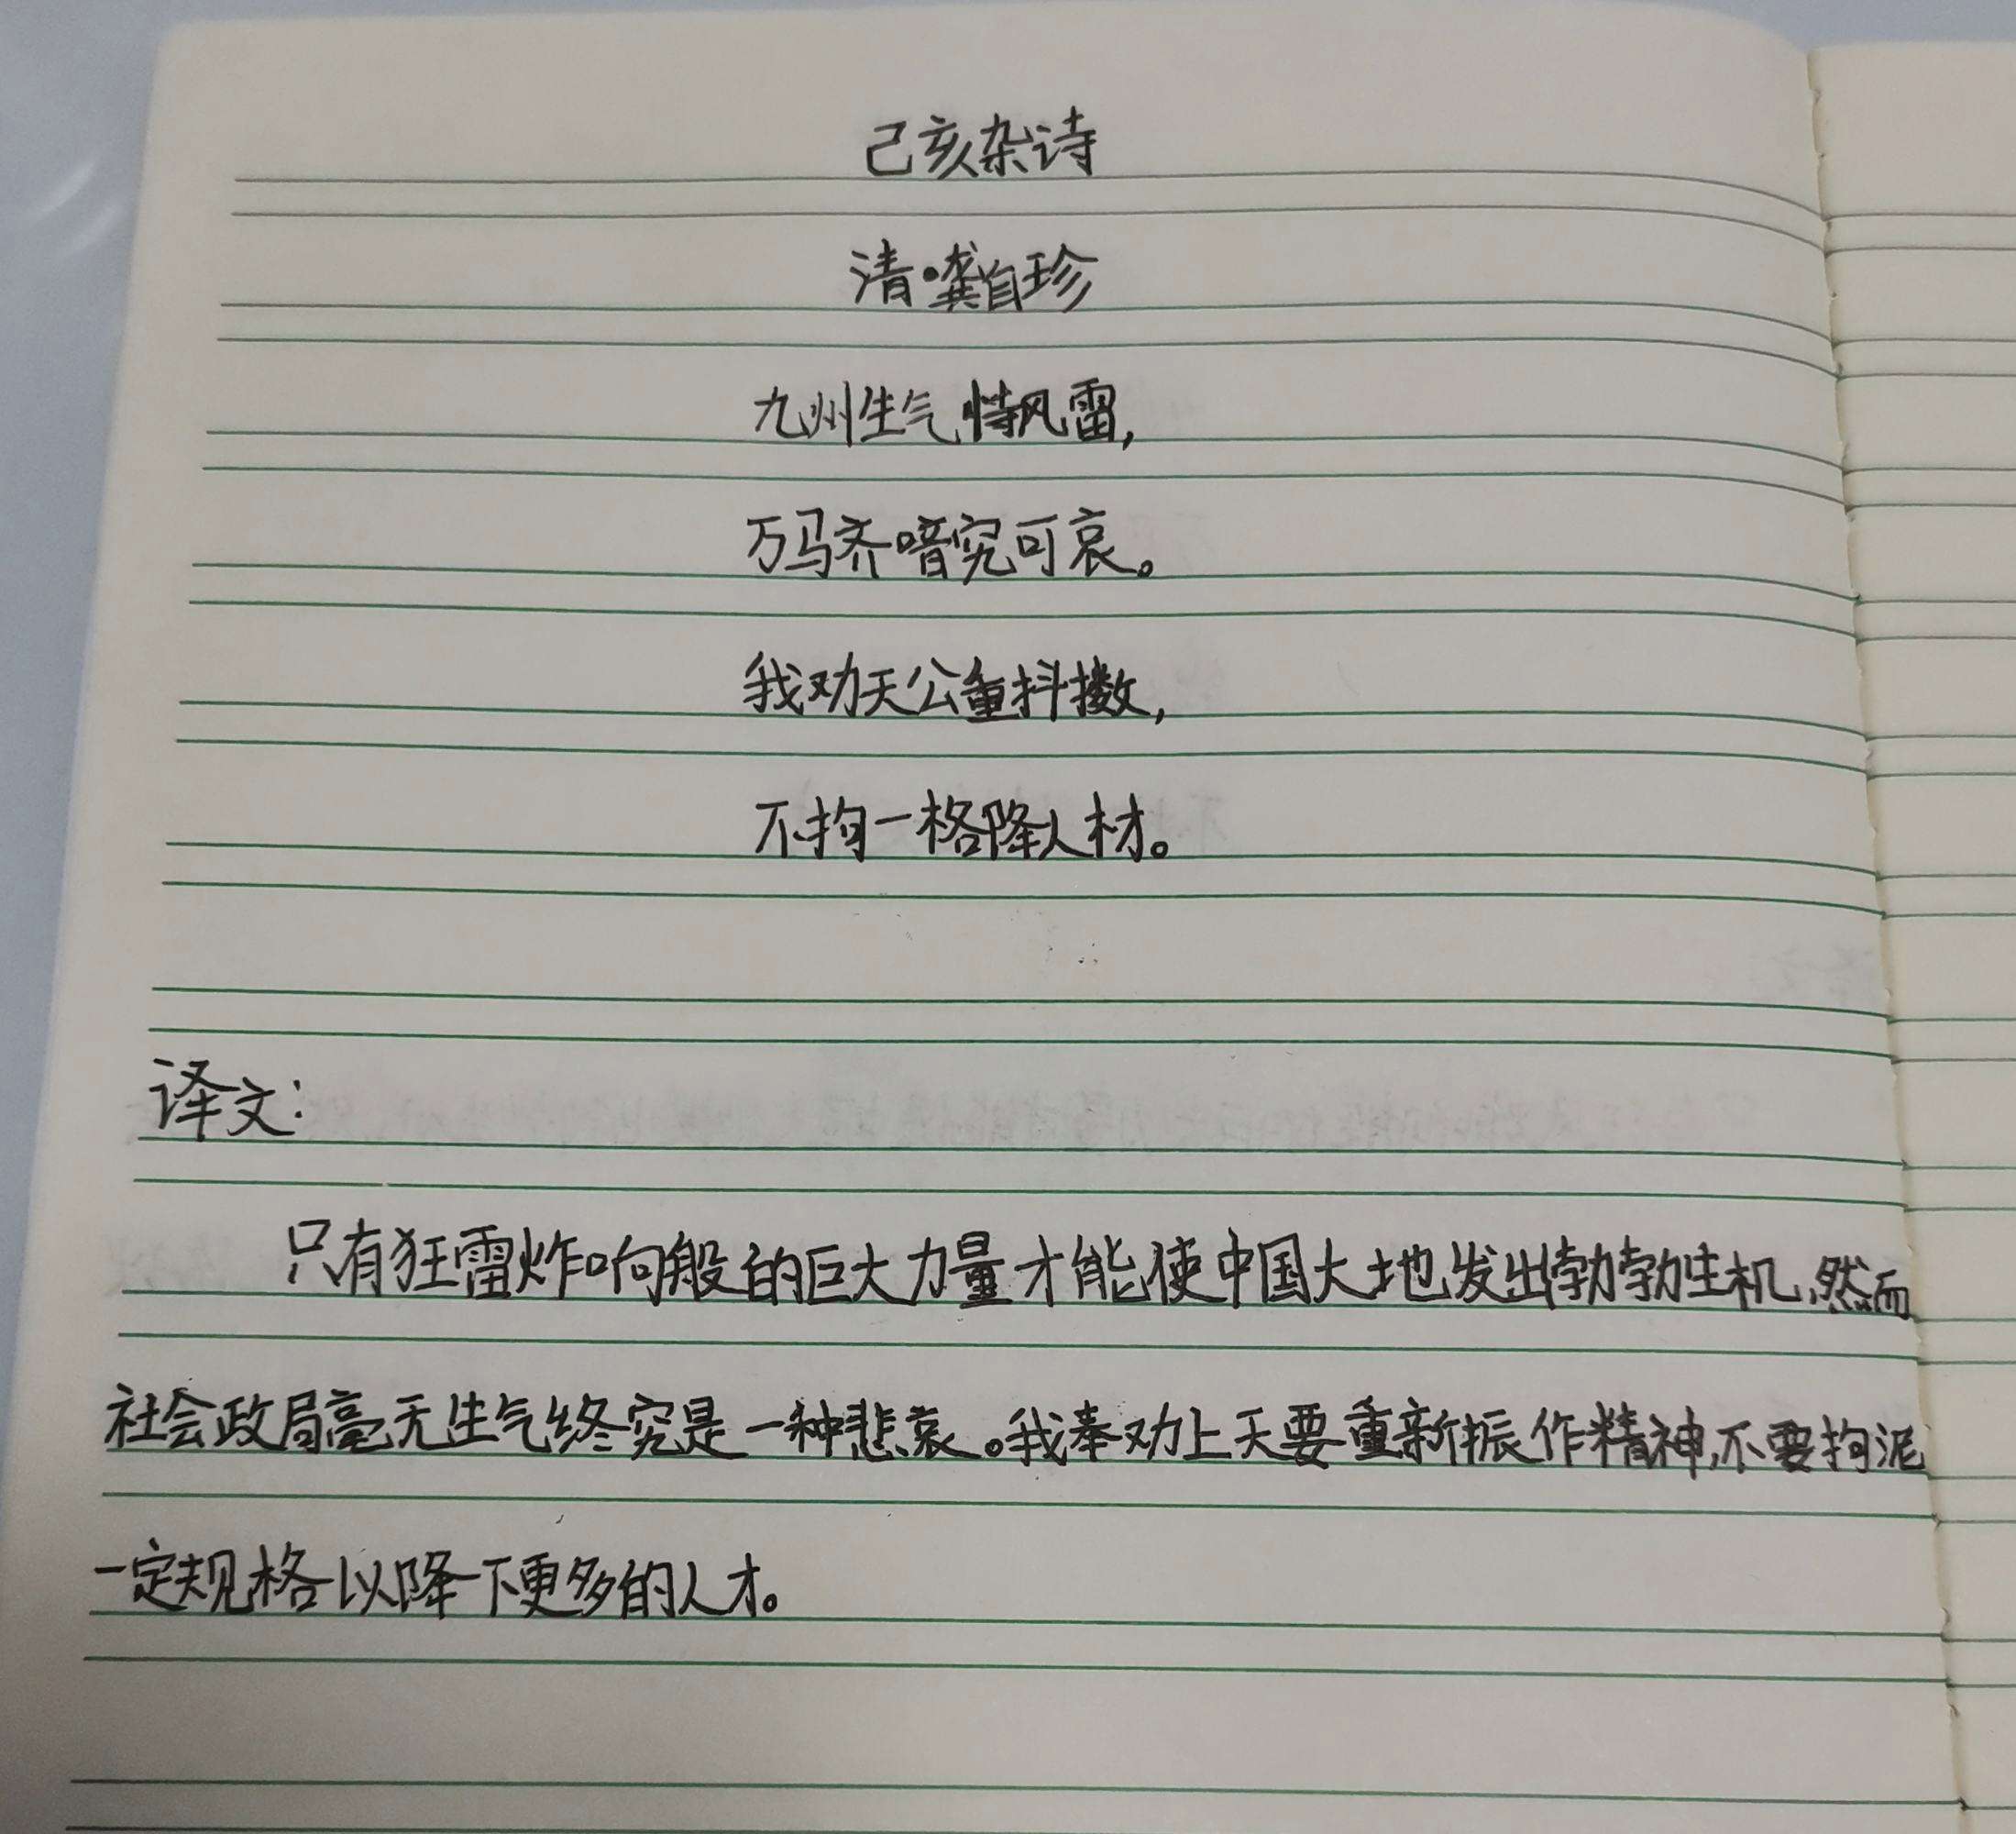 己亥杂诗
清·龚自珍
九州生气恃风雷,
万马齐喑究可哀。
我劝天公重抖擞,
不拘一格降人材。
译文:
只有狂雷炸响般的巨大力量才能使中国大地发出勃勃生机,然而
社会政局毫无生气终究是一种悲哀。我奉劝上天要重新振作精神,不要拘泥
一定规格以降下更多的人才。